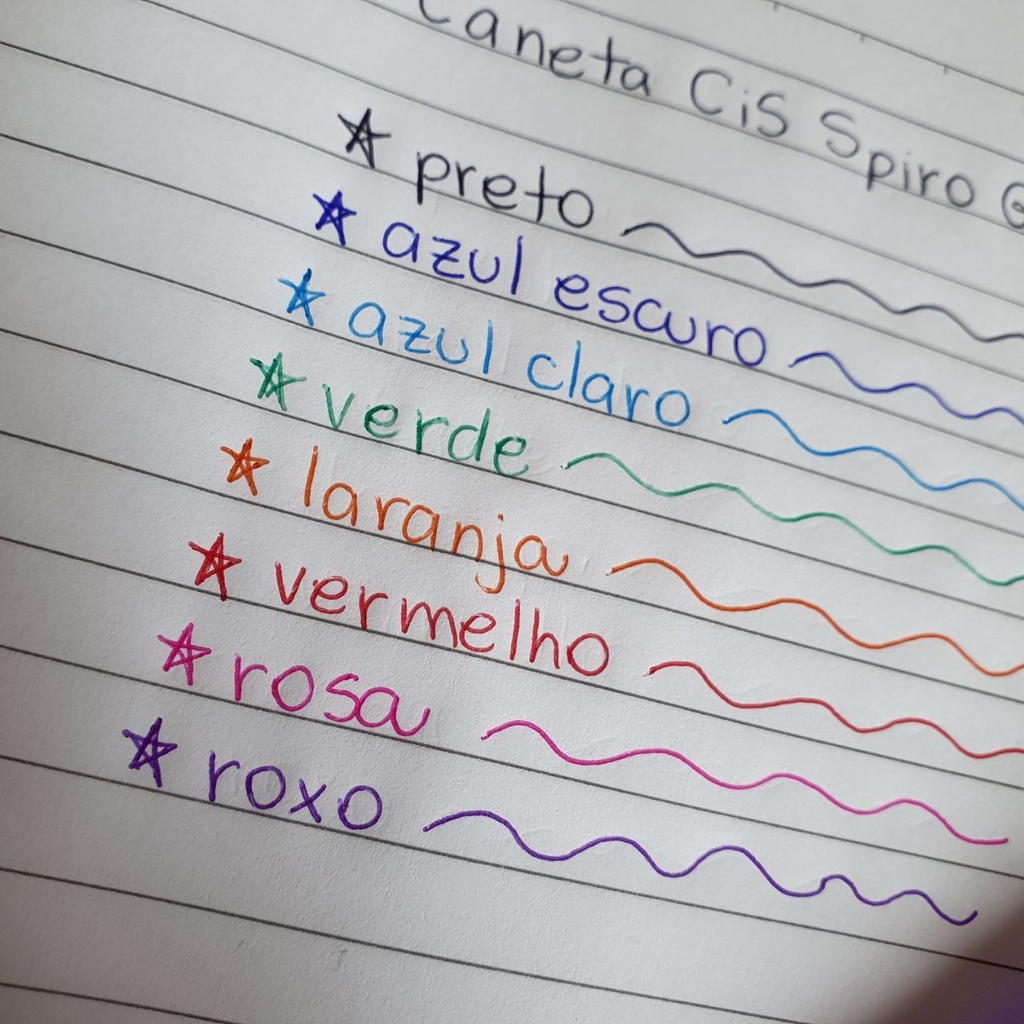 Caneta CiS Spiro
preto
azul escuro
azul claro
verde
laranja
vermelho
rosa
roxo